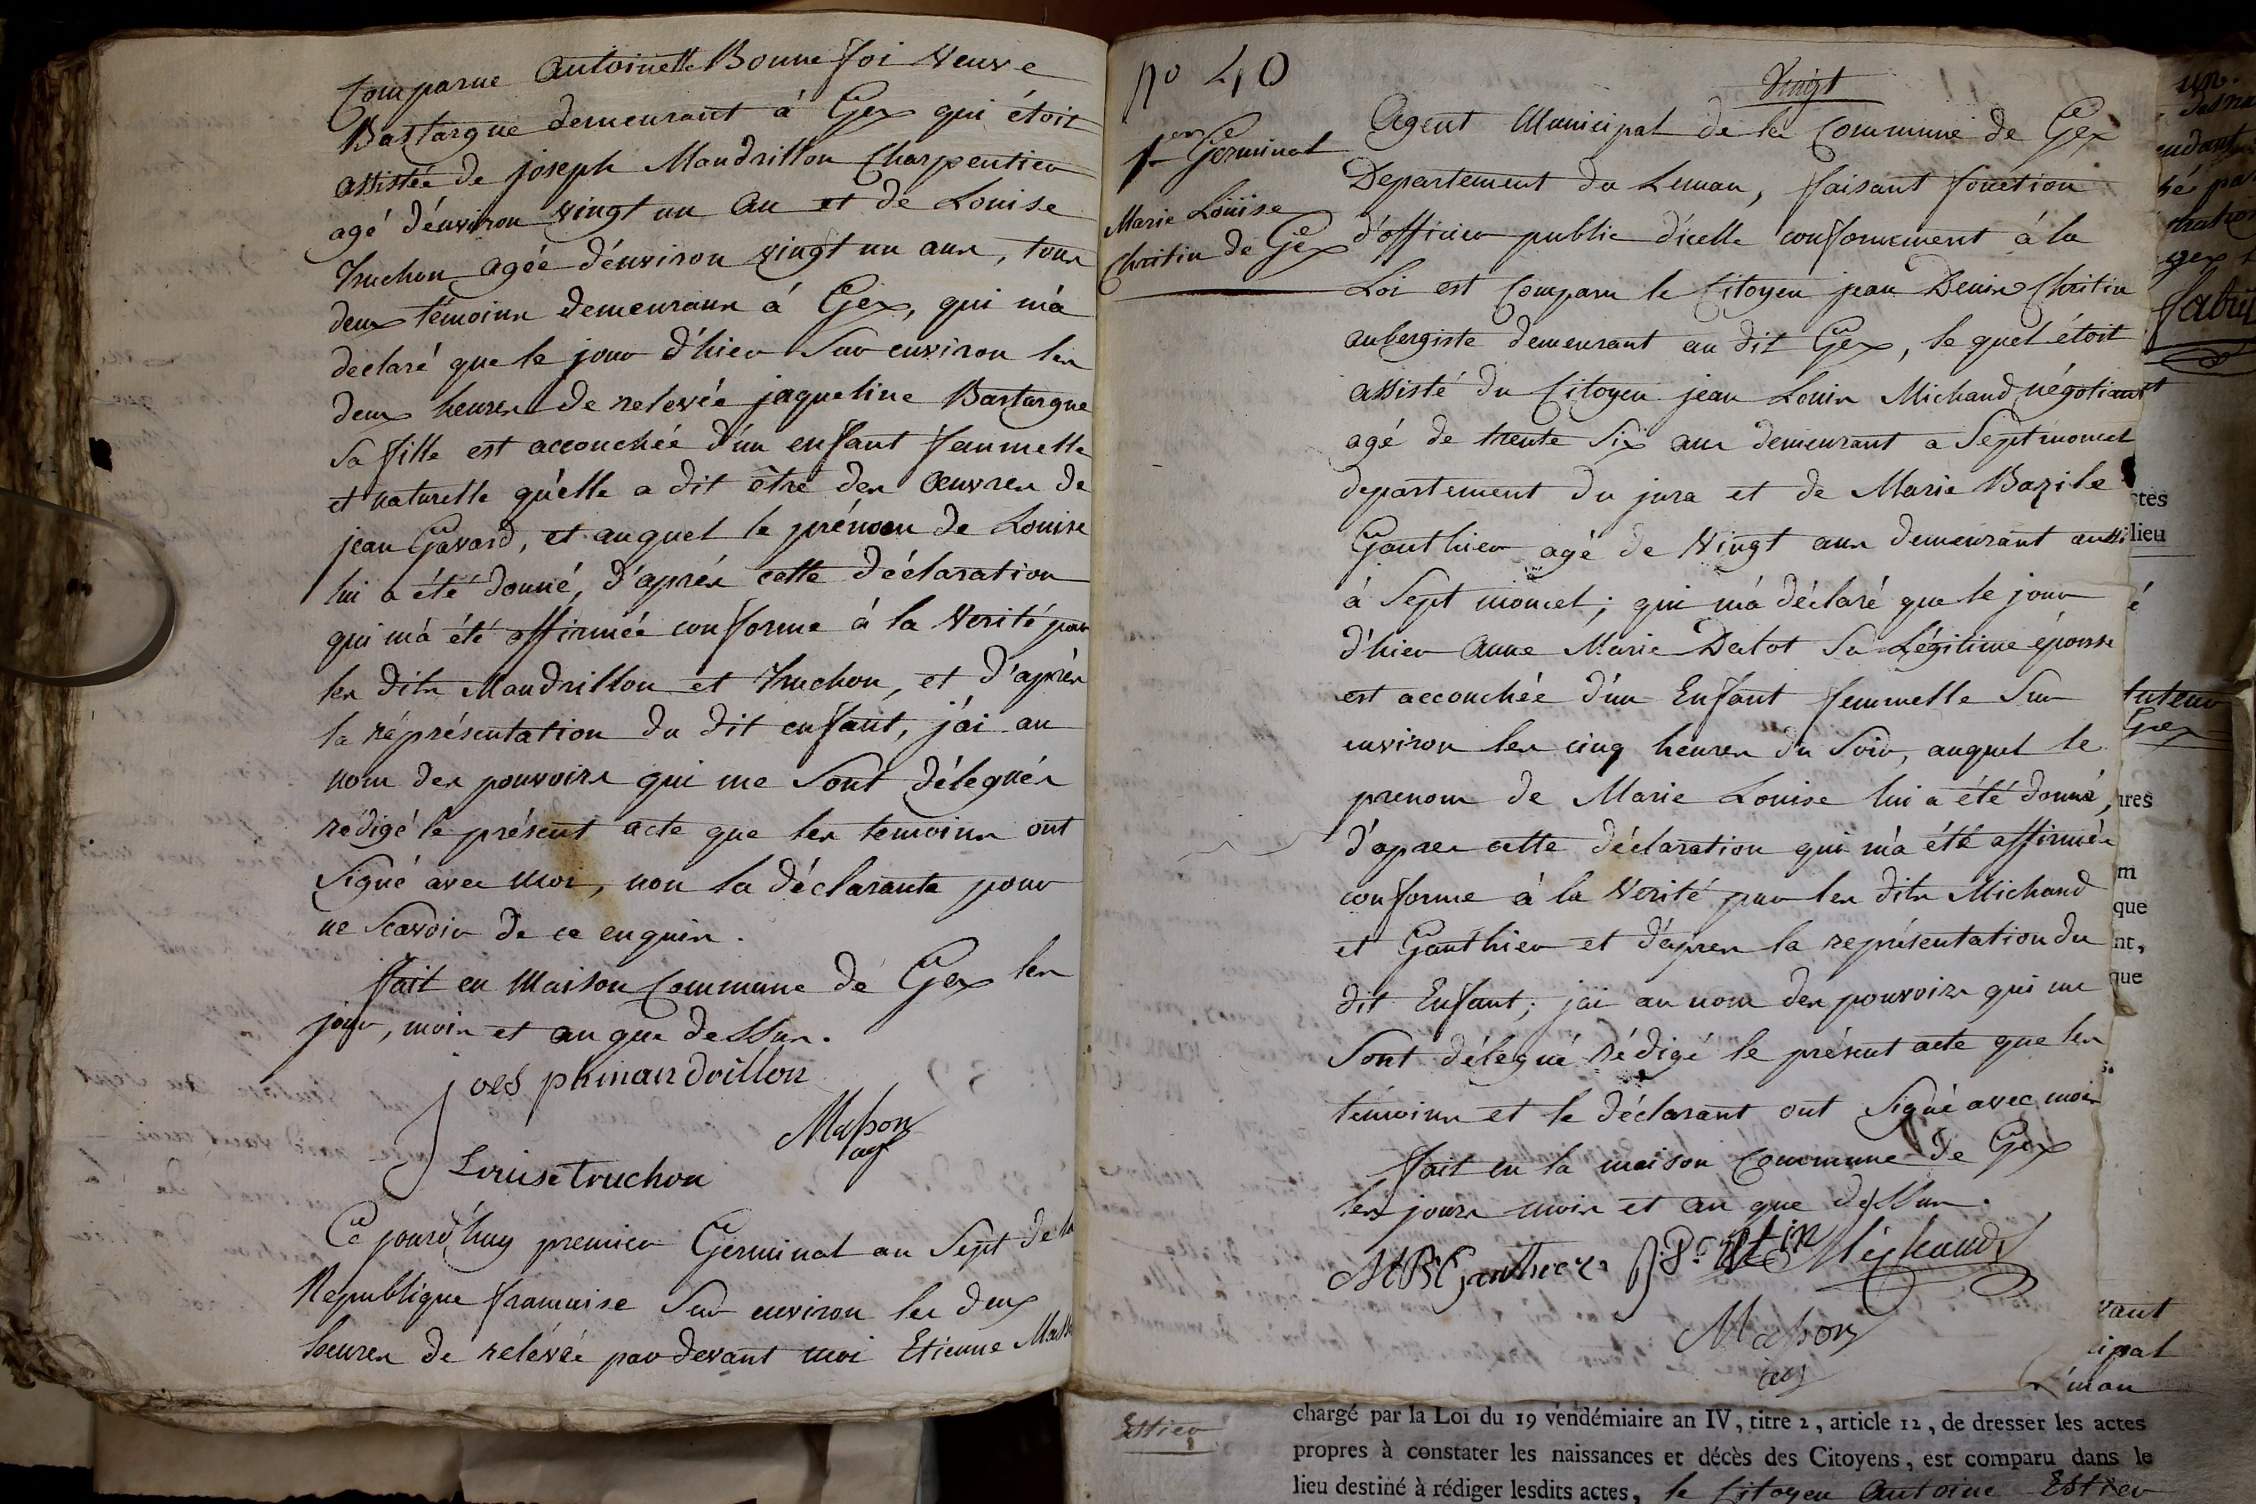 Comparue Antoinette Bonnefoi Veuve
Bastargue demeurant à Gex qui étoit
assistée de joseph Mandrillon Charpentier
agé d'énviron vingt un an et de Louise
Truchon agée d'énviron vingt un ans, tous
deux témoins demeurans à Gex, qui m'a
declaré que le jour d'hier Sur environ les
deux heures de relevée jaqueline Bastargue
Sa fille est accouchée d'un enfant femmelle
et naturelle qu'elle a dit être des Œuvres de
jean Gavard, et auquel le prénom de Louise
lui a été donné, d'aprés cette déclaration
qui m'a été affirmée conforme à la Verité par
les dits Mandrillon et Truchon, et d'aprés
la réprésentation du dit enfant, j'ai au
nom des pouvoirs qui me Sont délegués
rédigé le présent acte que les temoins ont
Signé avec moi, non la déclarante pour
ne Scavoir de ce enquis.
fait en Maison Commune de Gex les
jour, mois et an que dessus.
joes phmandrillon
Masson
ag
Louise truchon
Ce jourd'huy premier Germinal an Sept de la
Republique francaise Sur environ les deux
heures de relévée par devant moi Etienne Mass
no 40
1er Germinal
Marie Loüise
Christin de Gex
Vingt
Agent Municipal de la Commune de Gex
Departement du Leman, faisant fonction
d'officier public d'icelle conformement à la
Loi est Comparu le Citoyen jean Denis Christin
aubergiste demeurant au dit Gex, le quel étoit
assisté du Citoyen jean Louis Michaud négotiant
agé de trente Six ans demeurant a Septmoncel
departement du jura et de Marie Bazile
Gauthier agé de Vingt ans demeurant aussi
à Sept moncel; qui m'a déclaré que le jour
d'hier Anne Marie Dalot Sa Légitime épouse
est accouchée d'un Enfant femmelle Sur
environ les cinq heures du Soir, auquel le
prenom de Marie Louise lui a été donné,
d'apres cette déclaration qui m'a été affirmée
conforme à la Verité par les dits Michaud
et Gauthier et d'apres la représentation du
dit Enfant; jai au nom des pouvoirs qui me
Sont délegué rédigé le présent acte que les
témoins et le déclarant ont Signé avec moi
fait en la maison Commune de Gex
les jours mois et an que dessus.
MBGauthier
Michaud
Masson
ag
un.
fabri
ctes
lieu
tuteur
Gex
ires
m
que
nt,
que
s.
vant
cipal
Léman
Estier
chargé par la Loi du 19 vendémiaire an IV, titre 2, article 12, de dresser les actes
propres à constater les naissances et décès des Citoyens, est comparu dans le
lieu destiné à rédiger lesdits actes, le Citoyen Antoine Estier